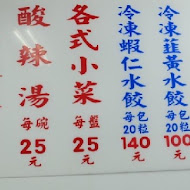 冷凍韮黃水餃
每包
20粒
100
元
冷凍蝦仁水餃
每包
20粒
140
元
各式小菜
每盤
25
元
酸辣湯
每碗
25
元